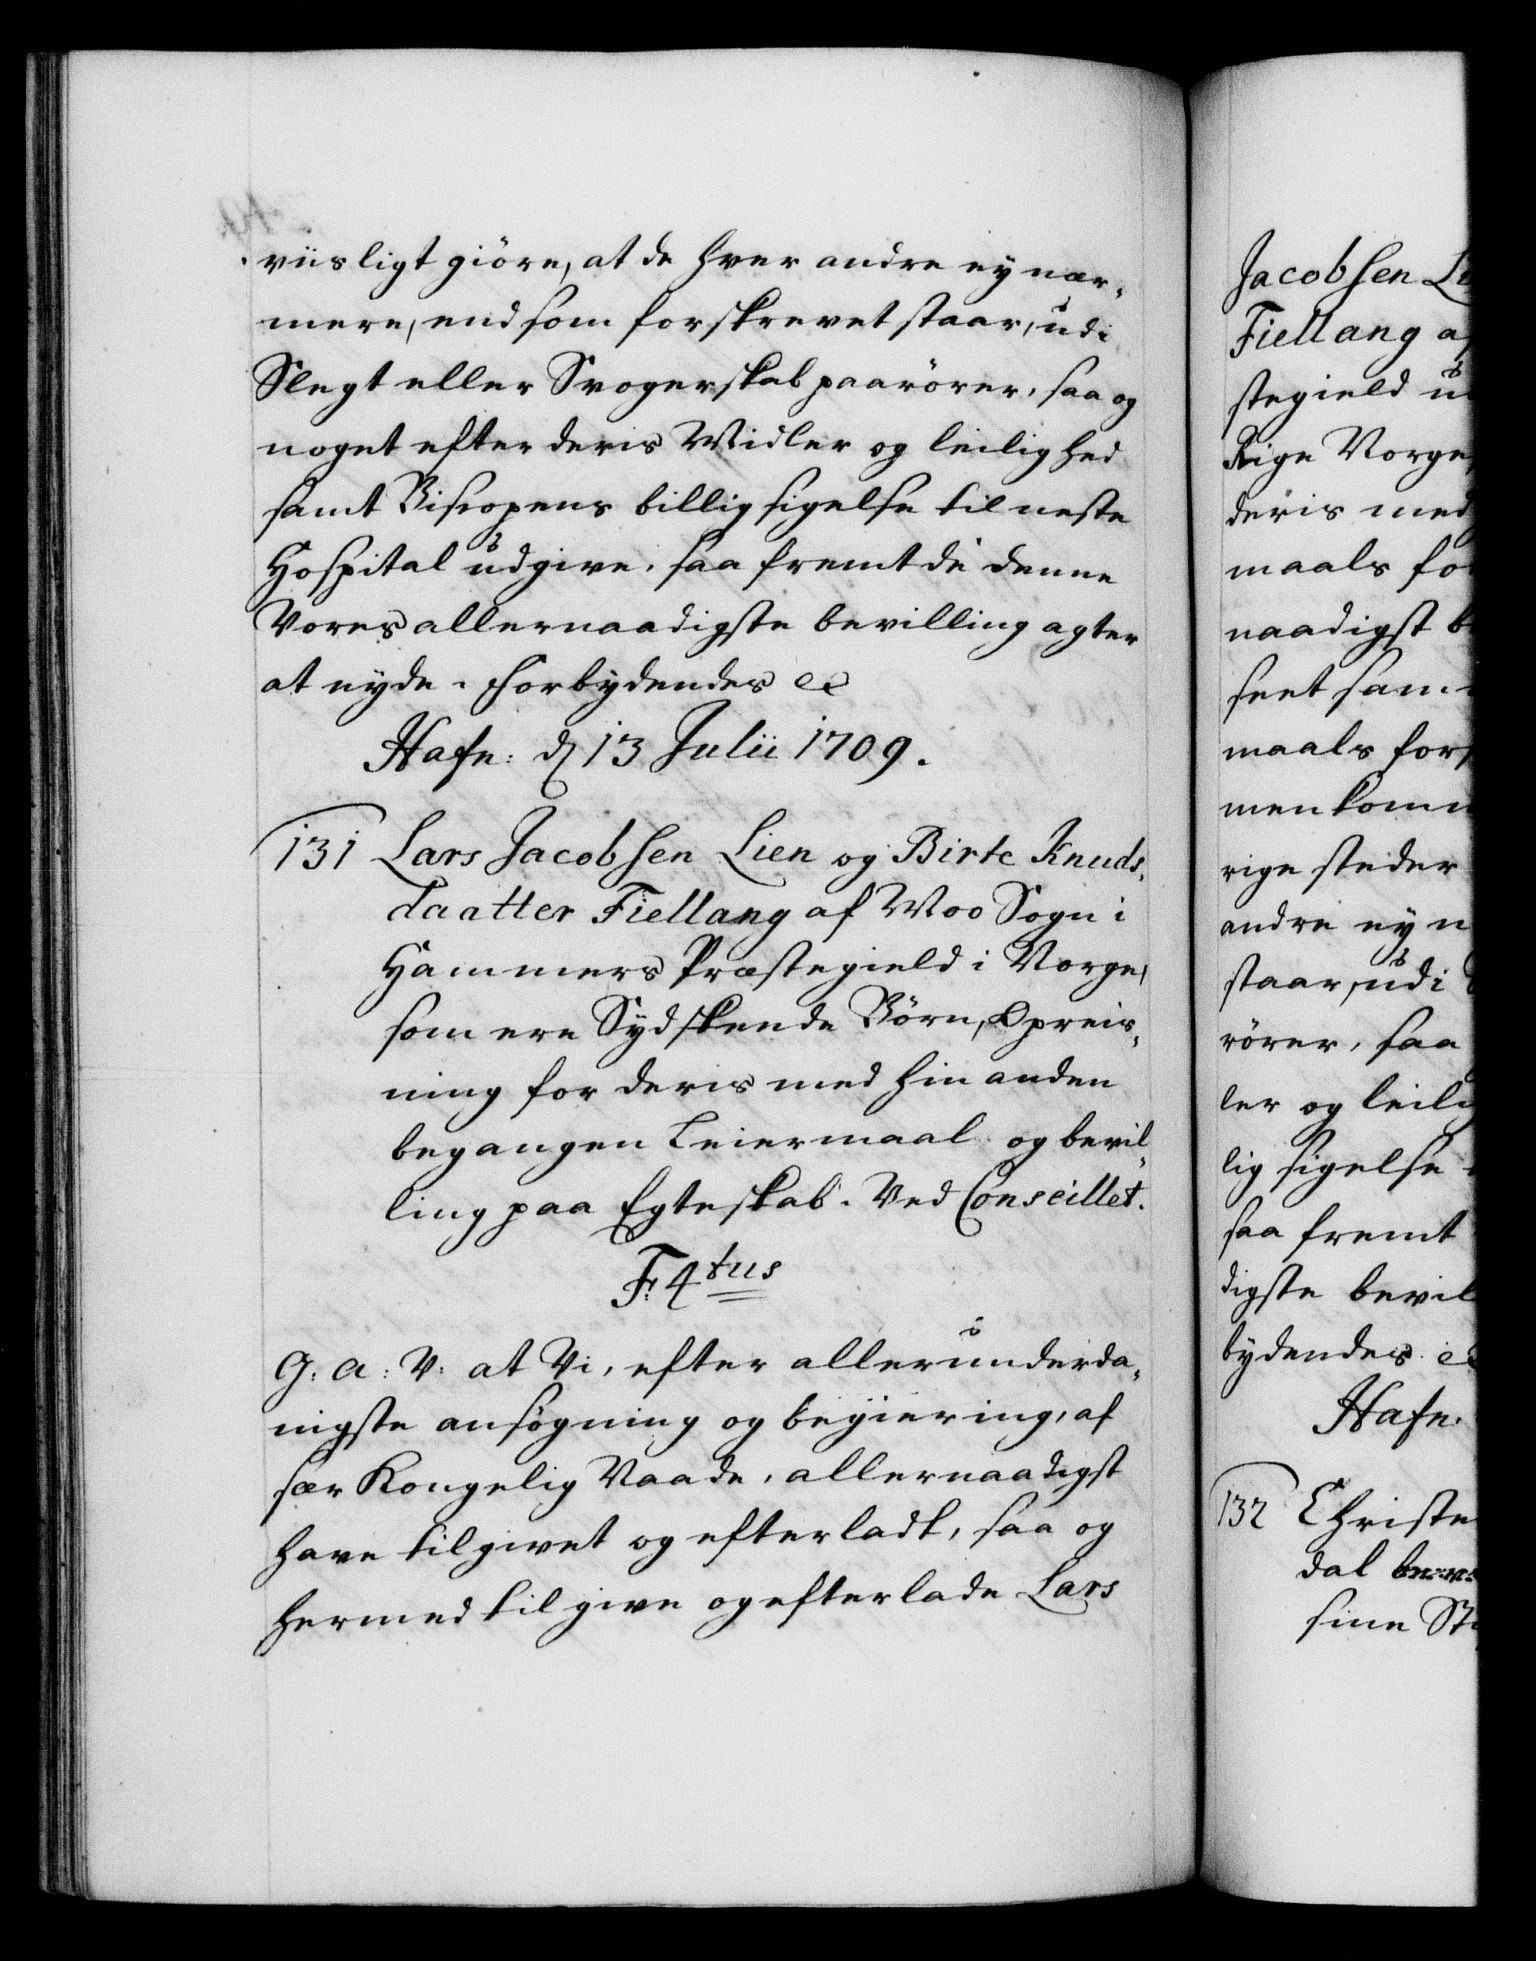 viisligt giöre, at de hver andre ey nær-
mere, end som forskrevet staar, udi
Slegt eller Svogerskab paarörer, saa og
noget efter deris Midler og leilighed
samt Biscopens billigsigelse til neste
Hospital udgive. saa fremt de denne
Vores allernaadigste bevilling agter
at nyde. Forbydendes &c
Hafn: d 13 Julii 1709.
131 Lars Jacobsen Lien og Birte Knuds-
daatter Fiellang af Moo Sogn i
Hammers Præstegield i Norge,
som ere Sydskende Börn, Opreis-
ning for deris med hinanden
begangen Leiermaal og bevil-
ling paa Egteskab. Ved Conseillet.
F: 4tus
G: A: V: at Vi, efter allerunderda-
nigste ansögning og begiering, af
sær Kongelig Naade, allernaadigst
have tilgivet og efterladt, saa og
hermed tilgive og efterlade Lars
Jacobsen Li
Fiellang a
stegield u
Rige Norge
deris med
maals fo
naadigst b
seet sam
maals fors
men komm
rige steder
andre ey n
staar, udi
rörer, saa
ler og leili
lig sigelse
saa fremt
digste bevil
bydendes &
Hafn:
132 Christe
dal
sine St